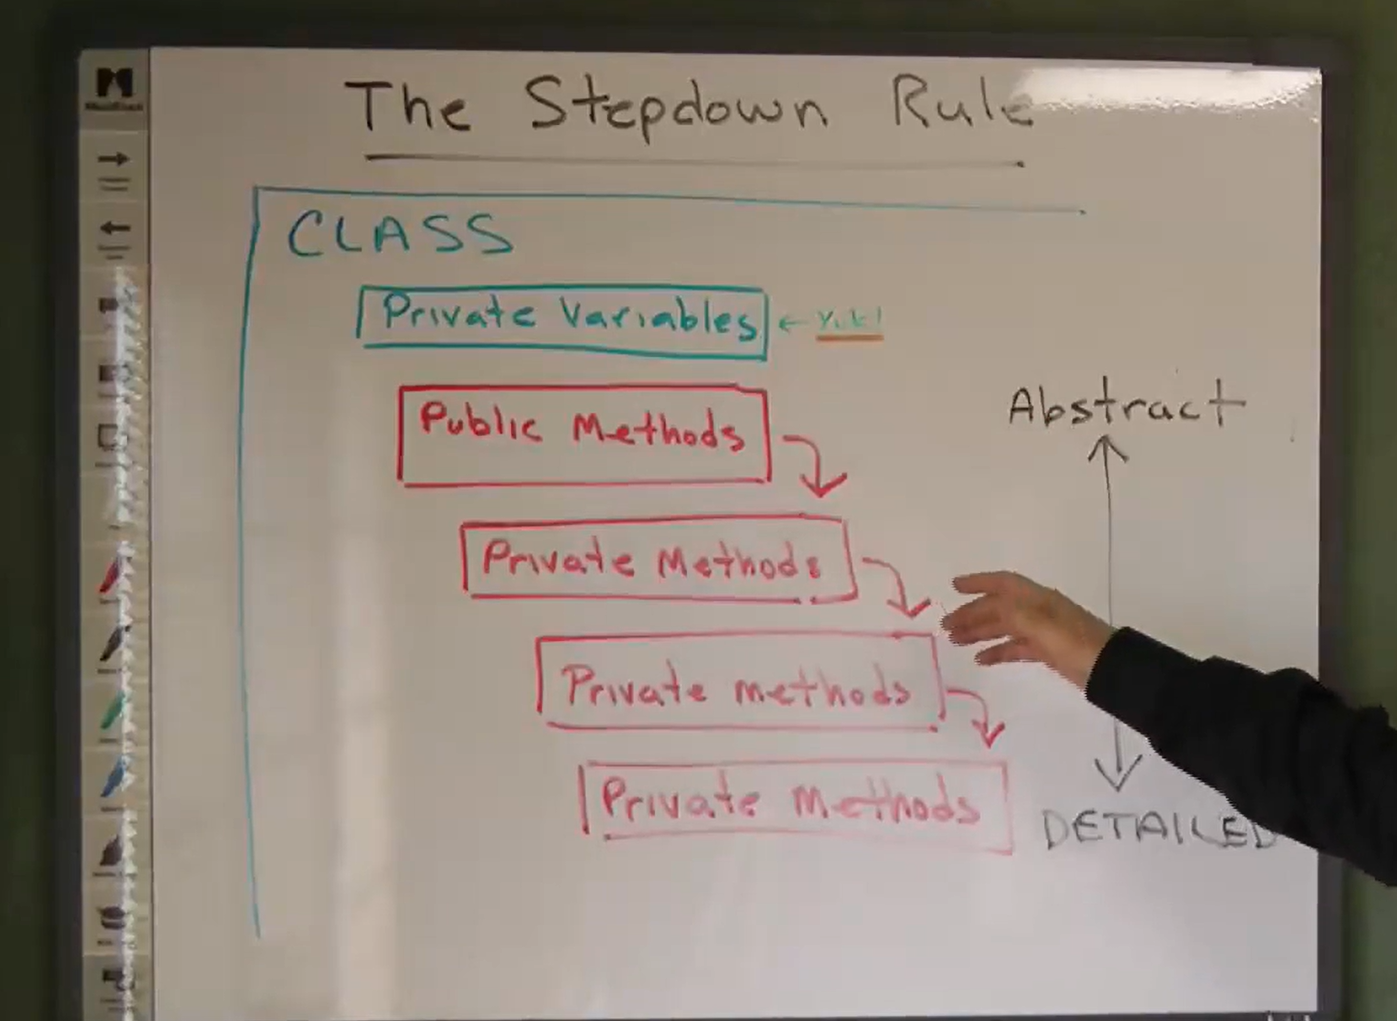 The Stepdown Rule
CLASS
Private Variables ← Yuk!
Public Methods
Abstract
Private Methods
Private methods
Private Methods
DETAILED